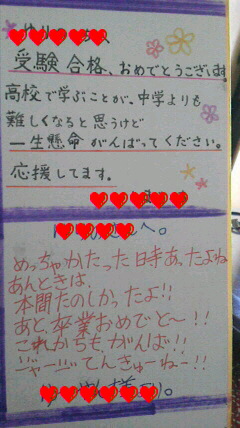 受験合格、おめでとうございます。
高校で学ぶことが、中学よりも
難しくなると思うけど
一生懸命がんばってください。
応援してます。
へ。
めっちゃかたった日寺あったよね
あんときは、
本間たのしかったよ!!
あと、卒業おめでと〜!!
これからもがんば!!
ぢゃーぢてんきゅーねー!!